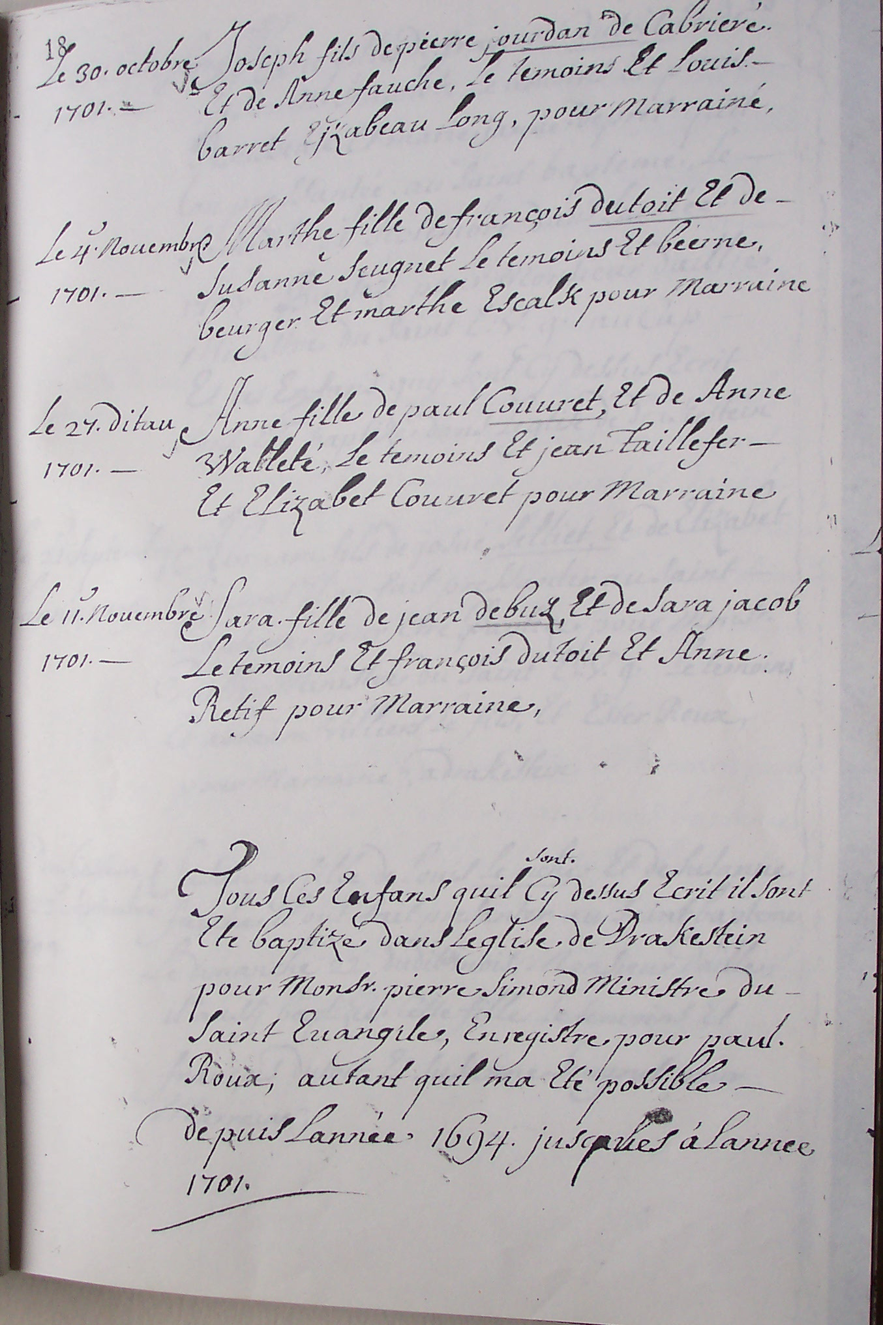 18
Le 30. octobre Joseph fils de pierre jourdan de Cabrieré.
1701. — Et de Anne fauche, Le temoins Et Louis —
barret Ejzabeau Long, pour Marrainé,
Le 4. Nouembre Marthe fille de françois dutoit Et de —
1701. — Susanne Seugnet Le temoins Et beerne,
beurger Et marthe Escalk pour Marraine
Le 27. ditau Anne fille de paul Couuret, Et de Anne
1701. — Walleté, Le temoins Et jean Taillefer —
Et Elizabet Couuret pour Marraine
Le 11. Nouembre Sara fille de jean debuz, Et de Sara jacob
1701. — Le temoins Et françois dutoit Et Anne.
Retif pour Marraine,
sont.
Tous Ces Enfans quil Cy dessus Ecrit il sont
Ete baptizé dans Leglise de Drakestein
pour Monsr. pierre Simond Ministre du —
Saint Euangile, Enregistre pour paul.
Roux; autant quil ma Eté possible —
depuis Lannée 1694. jusques á Lannee
1701.